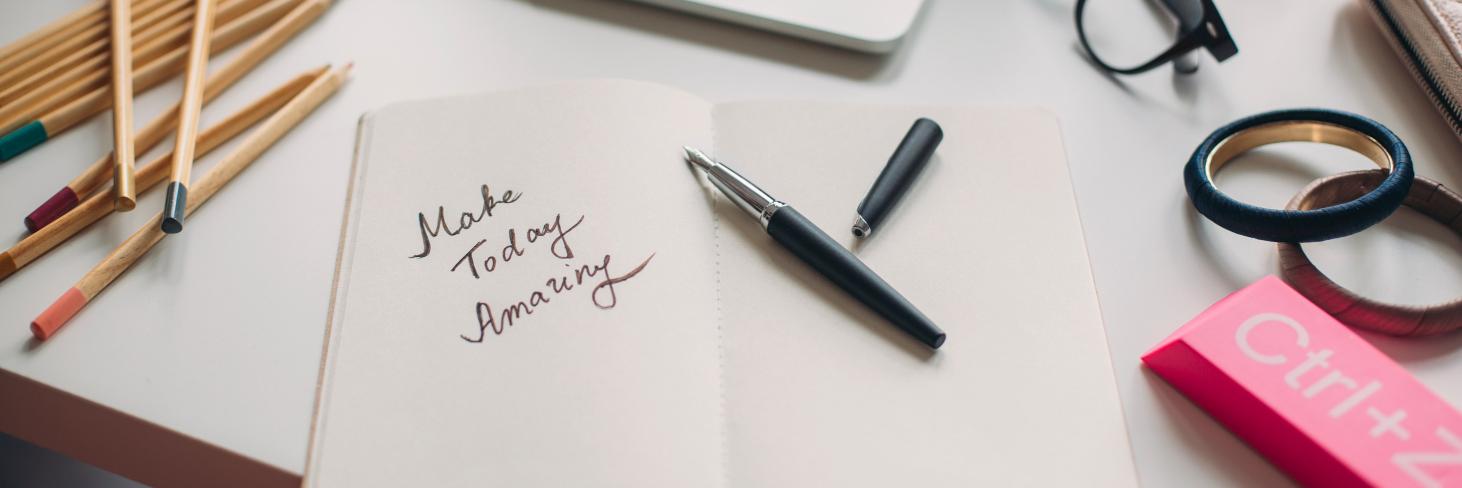 Make
Today
Amazing
Ctrl+Z